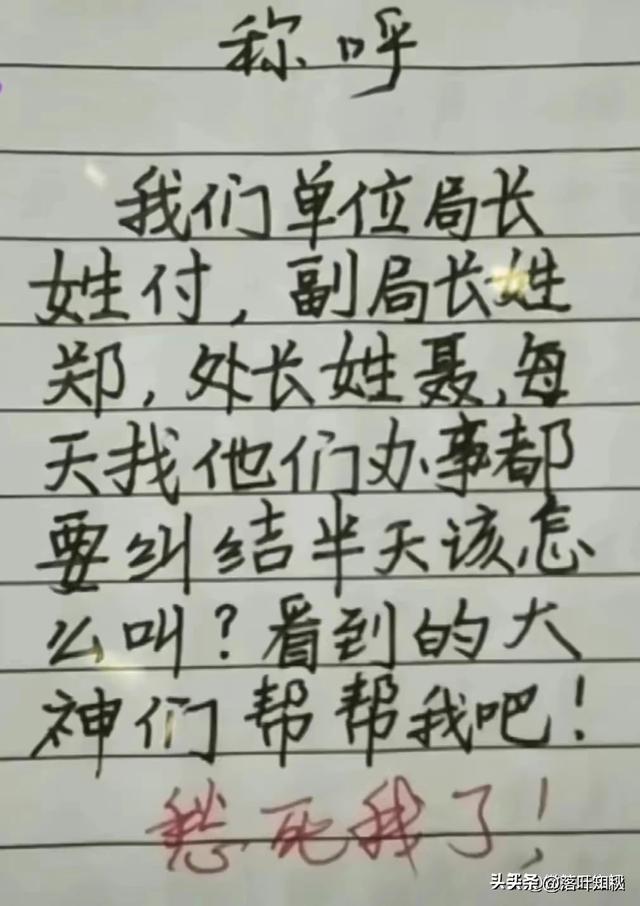 称呼
我们单位局长
姓付,副局长姓
郑,处长姓聂,每
天找他们办事都
要纠结半天该怎
么叫?看到的大
神们帮帮我吧!
愁死我了!
头条@落叶知秋